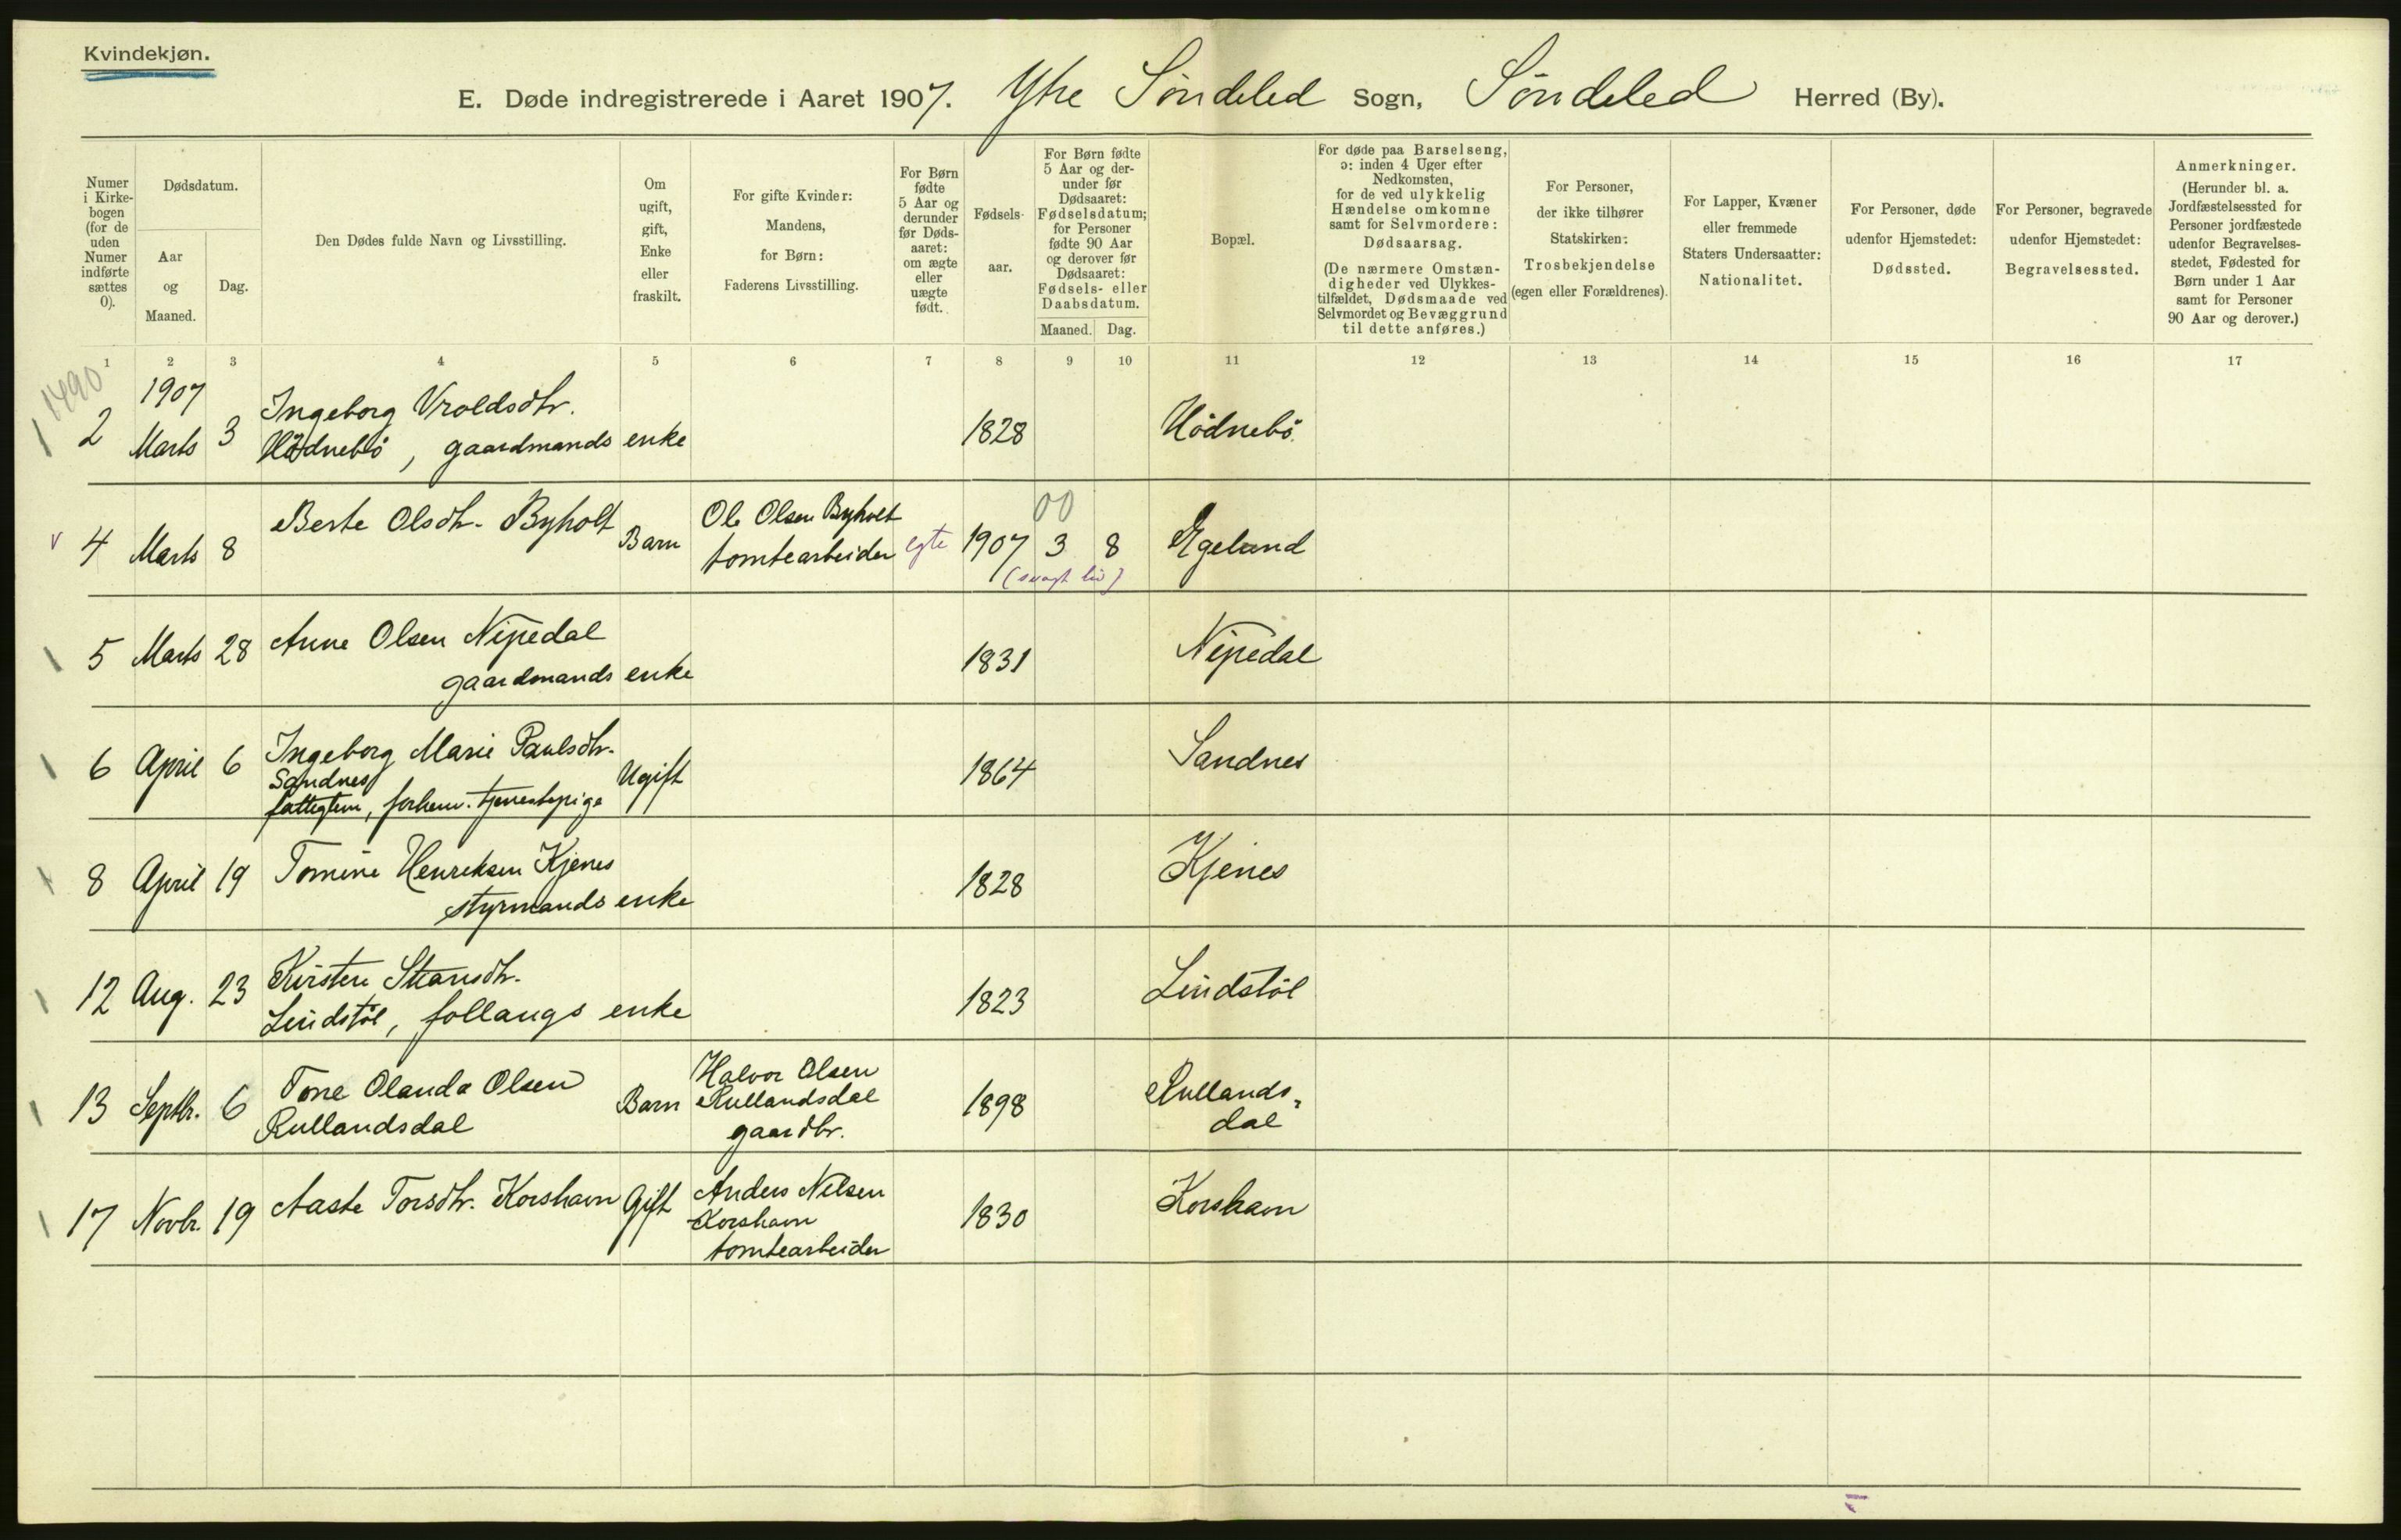 Kvindekjøn.
E. Døde indregistrerede i Aaret 1907. Ytre Søndeled Sogn, Søndeled Herred (By).
Numer
i Kirke-
bogen
(for de
uden
Numer
indførte
sættes
0).
Dødsdatum.
Aar
og
Maaned.
Dag.
Den Dødes fulde Navn og Livsstilling.
Om
ugift,
gift,
Enke
eller
fraskilt.
For gifte Kvinder:
Mandens,
for Børn:
Faderens Livsstilling.
For Børn
fødte
5 Aar og
derunder
før Døds-
aaret:
om ægte
eller
uægte
født.
Fødsels-
aar.
For Børn fødte
5 Aar og der-
under før
Dødsaaret:
Fødselsdatum;
for Personer
fødte 90 Aar
og derover før
Dødsaaret:
Fødsels- eller
Daabsdatum.
Maaned. Dag.
Bopæl.
For døde paa Barselseng,
ɔ: inden 4 Uger efter
Nedkomsten,
for de ved ulykkelig
Hændelse omkomne
samt for Selvmordere:
Dødsaarsag.
(De nærmere Omstæn-
digheder ved Ulykkes-
tilfældet, Dødsmaade ved
Selvmordet og Bevæggrund
til dette anføres.)
For Personer,
der ikke tilhører
Statskirken:
Trosbekjendelse
(egen eller Forældrenes).
For Lapper, Kvæner
eller fremmede
Staters Undersaatter:
Nationalitet.
For Personer, døde
udenfor Hjemstedet:
Dødssted.
For Personer, begravede
udenfor Hjemstedet:
Begravelsessted.
Anmerkninger.
(Herunder bl. a.
Jordfæstelsessted for
Personer jordfæstede
udenfor Begravelses-
stedet, Fødested for
Børn under 1 Aar
samt for Personer
90 Aar og derover.)
1 2 3 4 5 6 7 8 9 10 11 12 13 14 15 16 17
1490
1907
Ingeborg Vroldsdtr.
2 Marts 3 Hødnebø, gaardmands enke 1828 Hødnebø.
00
Berte Olsdtr. Byholt Ole Olsen Byholt
4 Marts 8 Barn tomtearbeider egte 1907 3 8 Egeland
(svagt liv)
5 Marts 28 Anne Olsen Nipedal 1831 Nipedal
gaardmands enke
6 April 6 Ingeborg Marie Paulsdtr. Ugift 1864 Sandnes
Sandnes
fattiglem, forhenv. tjenestepige
8 April 19 Tomine Henriksen Kjenes 1828 Kjenes
styrmands enke
12 Aug. 23 Kirsten 1823 Lindstøl
Lindstøl, follaugs enke
Halvor Olsen
13 Septbr. 6 Tone Olanda Olsen Barn Rullandsdal 1898 Rullands-
Rullandsdal gaardbr. dal
17 Novbr. 19 Aaste Torsdtr. Korshavn Gift Anders Nilsen 1830 Korshavn
Korshavn
tomtearbeider